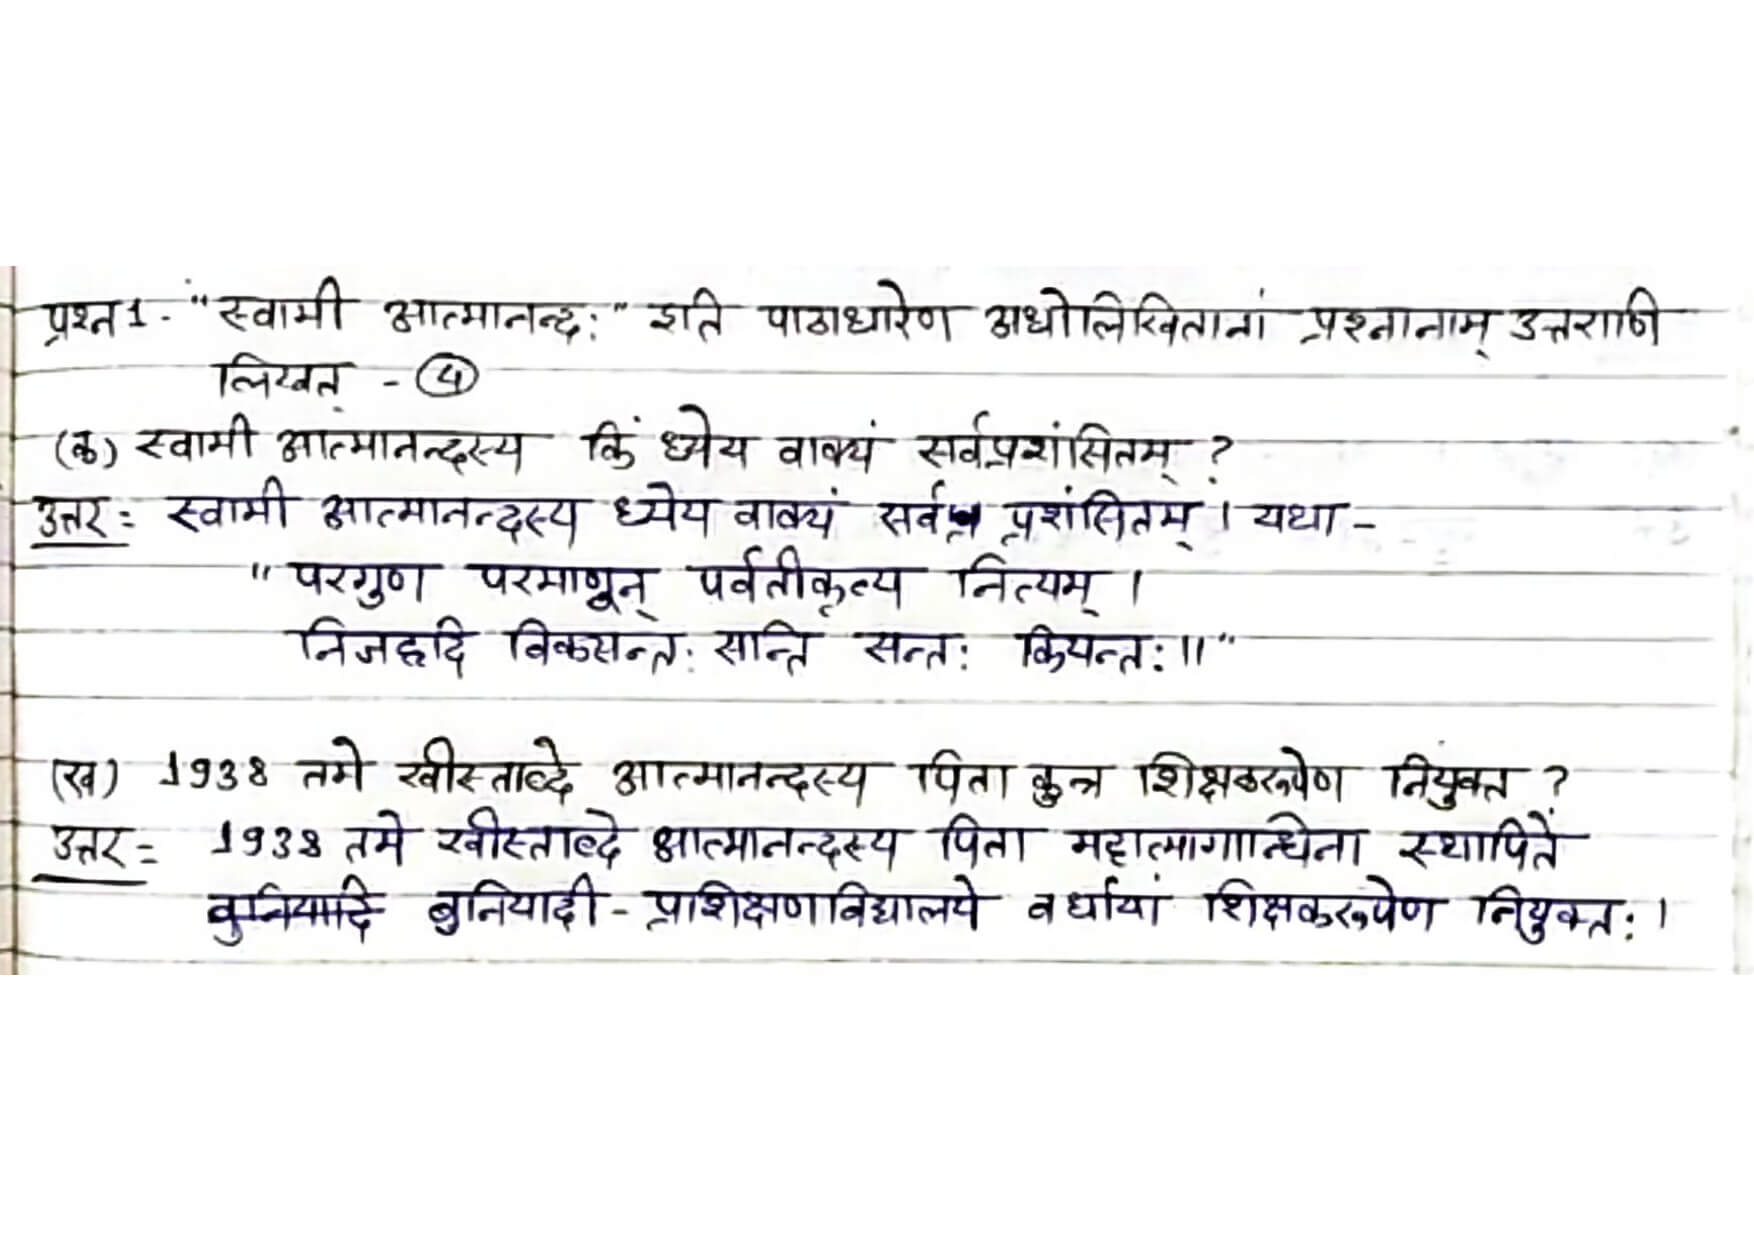 प्रश्न 1. "स्वामी आत्मानन्दः" इति पाठाधारेण अधोलिखितानां प्रश्नानाम् उत्तराणि
लिखत - ④
(क) स्वामी आत्मानन्दस्य किं ध्येय वाक्यं सर्वप्रशंसितम् ?
उत्तर = स्वामी आत्मानन्दस्य ध्येय वाक्यं सर्व प्रशंसितम् । यथा -
" परगुण परमाणून् पर्वतीकृत्य नित्यम् ।
निजहृदि विकसन्तः सान्ति सन्तः कियन्तः ।।"
(ख) 1938 तमे ख्रीस्ताब्दे आत्मानन्दस्य पिता कुत्र शिक्षकरूपेण नियुक्त ?
उत्तर = 1938 तमे ख्रीस्ताब्दे आत्मानन्दस्य पिता महात्मागान्धिना स्थापिते
बुनियादि बुनियादी - प्रशिक्षणविद्यालये वर्धायां शिक्षकरूपेण नियुक्तः ।